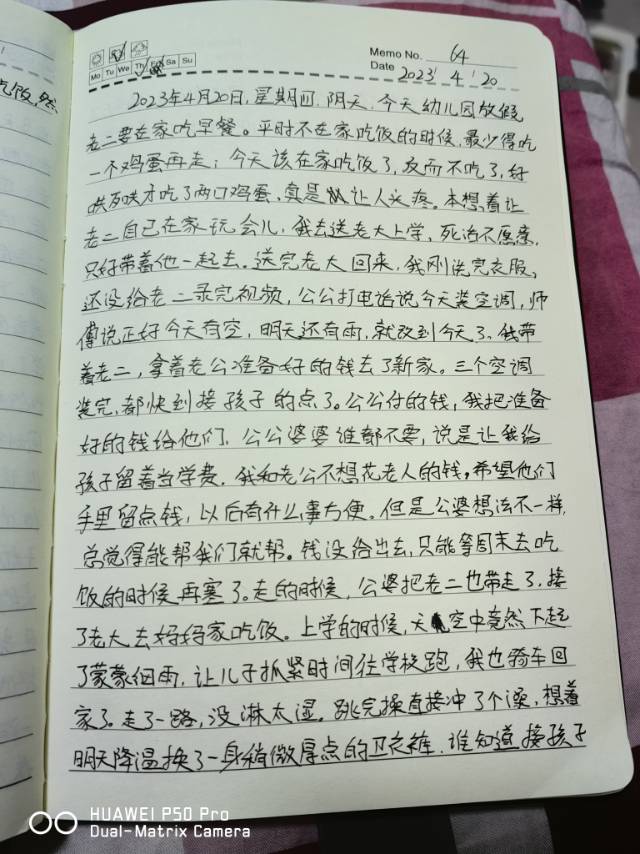 吃饭,然
Memo No. 64
Mo Tu We Th Fr Sa Su
Date 2023 4 20
2023年4月20日,星期四,阴天,今天幼儿园放假
老二要在家吃早餐。平时不在家吃饭的时候,最少得吃
一个鸡蛋再走;今天该在家吃饭了,反而不吃了,好
哄歹哄才吃了两口鸡蛋,真是让人头疼。本想着让
老二自己在家玩会儿,我去送老大上学,死活不愿意,
只好带着他一起去。送完老大回来,我刚洗完衣服,
还没给老二录完视频,公公打电话说今天装空调,师
傅说正好今天有空,明天还有雨,就改到今天了。我带
着老二,拿着老公准备好的钱去了新家。三个空调
装完,都快到接孩子的点了。公公付的钱,我把准备
好的钱给他们,公公婆婆谁都不要,说是让我给
孩子留着当学费。我和老公不想花老人的钱,希望他们
手里留点钱,以后有什么事方便。但是公婆想法不一样,
总觉得能帮我们就帮。钱没给出去,只能等周末去吃
饭的时候再塞了。走的时候,公婆把老二也带走了,接
了老大去好好家吃饭。上学的时候,天空中竟然下起
了蒙蒙细雨,让儿子抓紧时间往学校跑,我也骑车回
家了。走了一路,没淋太湿。跳完操直接冲了个澡,想着
明天降温换了一身稍微厚点的卫衣裤,谁知道接孩子
HUAWEI P50 Pro
Dual-Matrix Camera